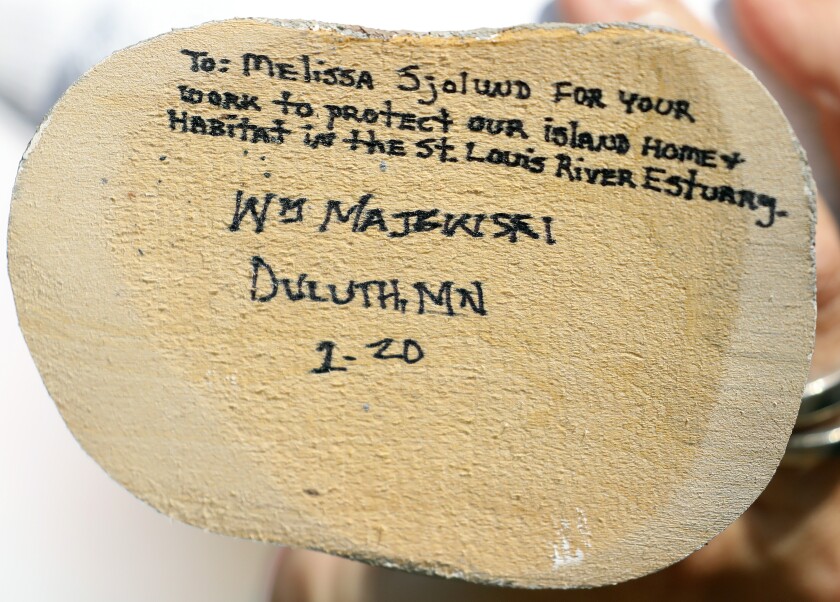 To: Melissa Sjolund FOR YOUR
WORK to PROTECT OUR ISLAND HOME &
HABITAT in the St. Louis RIVER ESTUARY.
Wm MAJEWSKI
DULUTH, MN
1-20